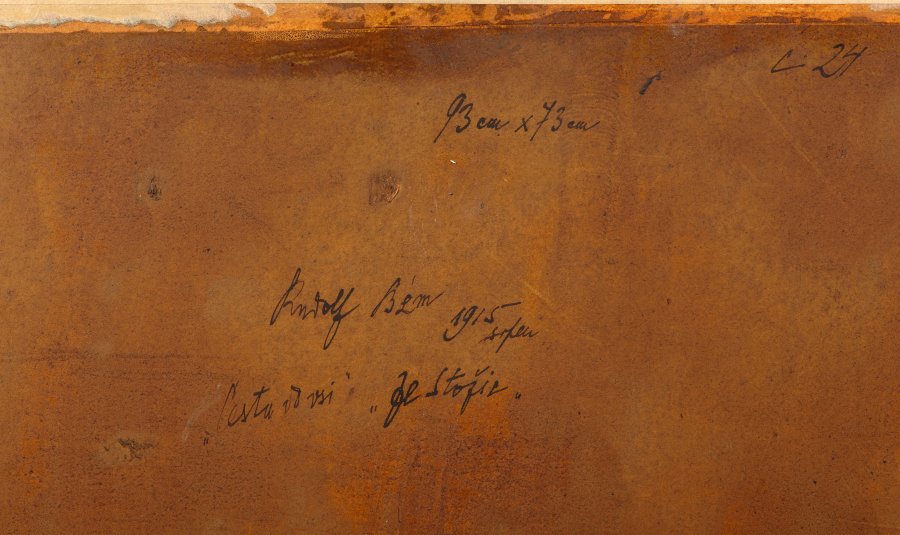 č 24
93 cm x 73 cm
Rudolf Bém
1915
srpen
„Cesta do vsi“ „Ze Stožic„